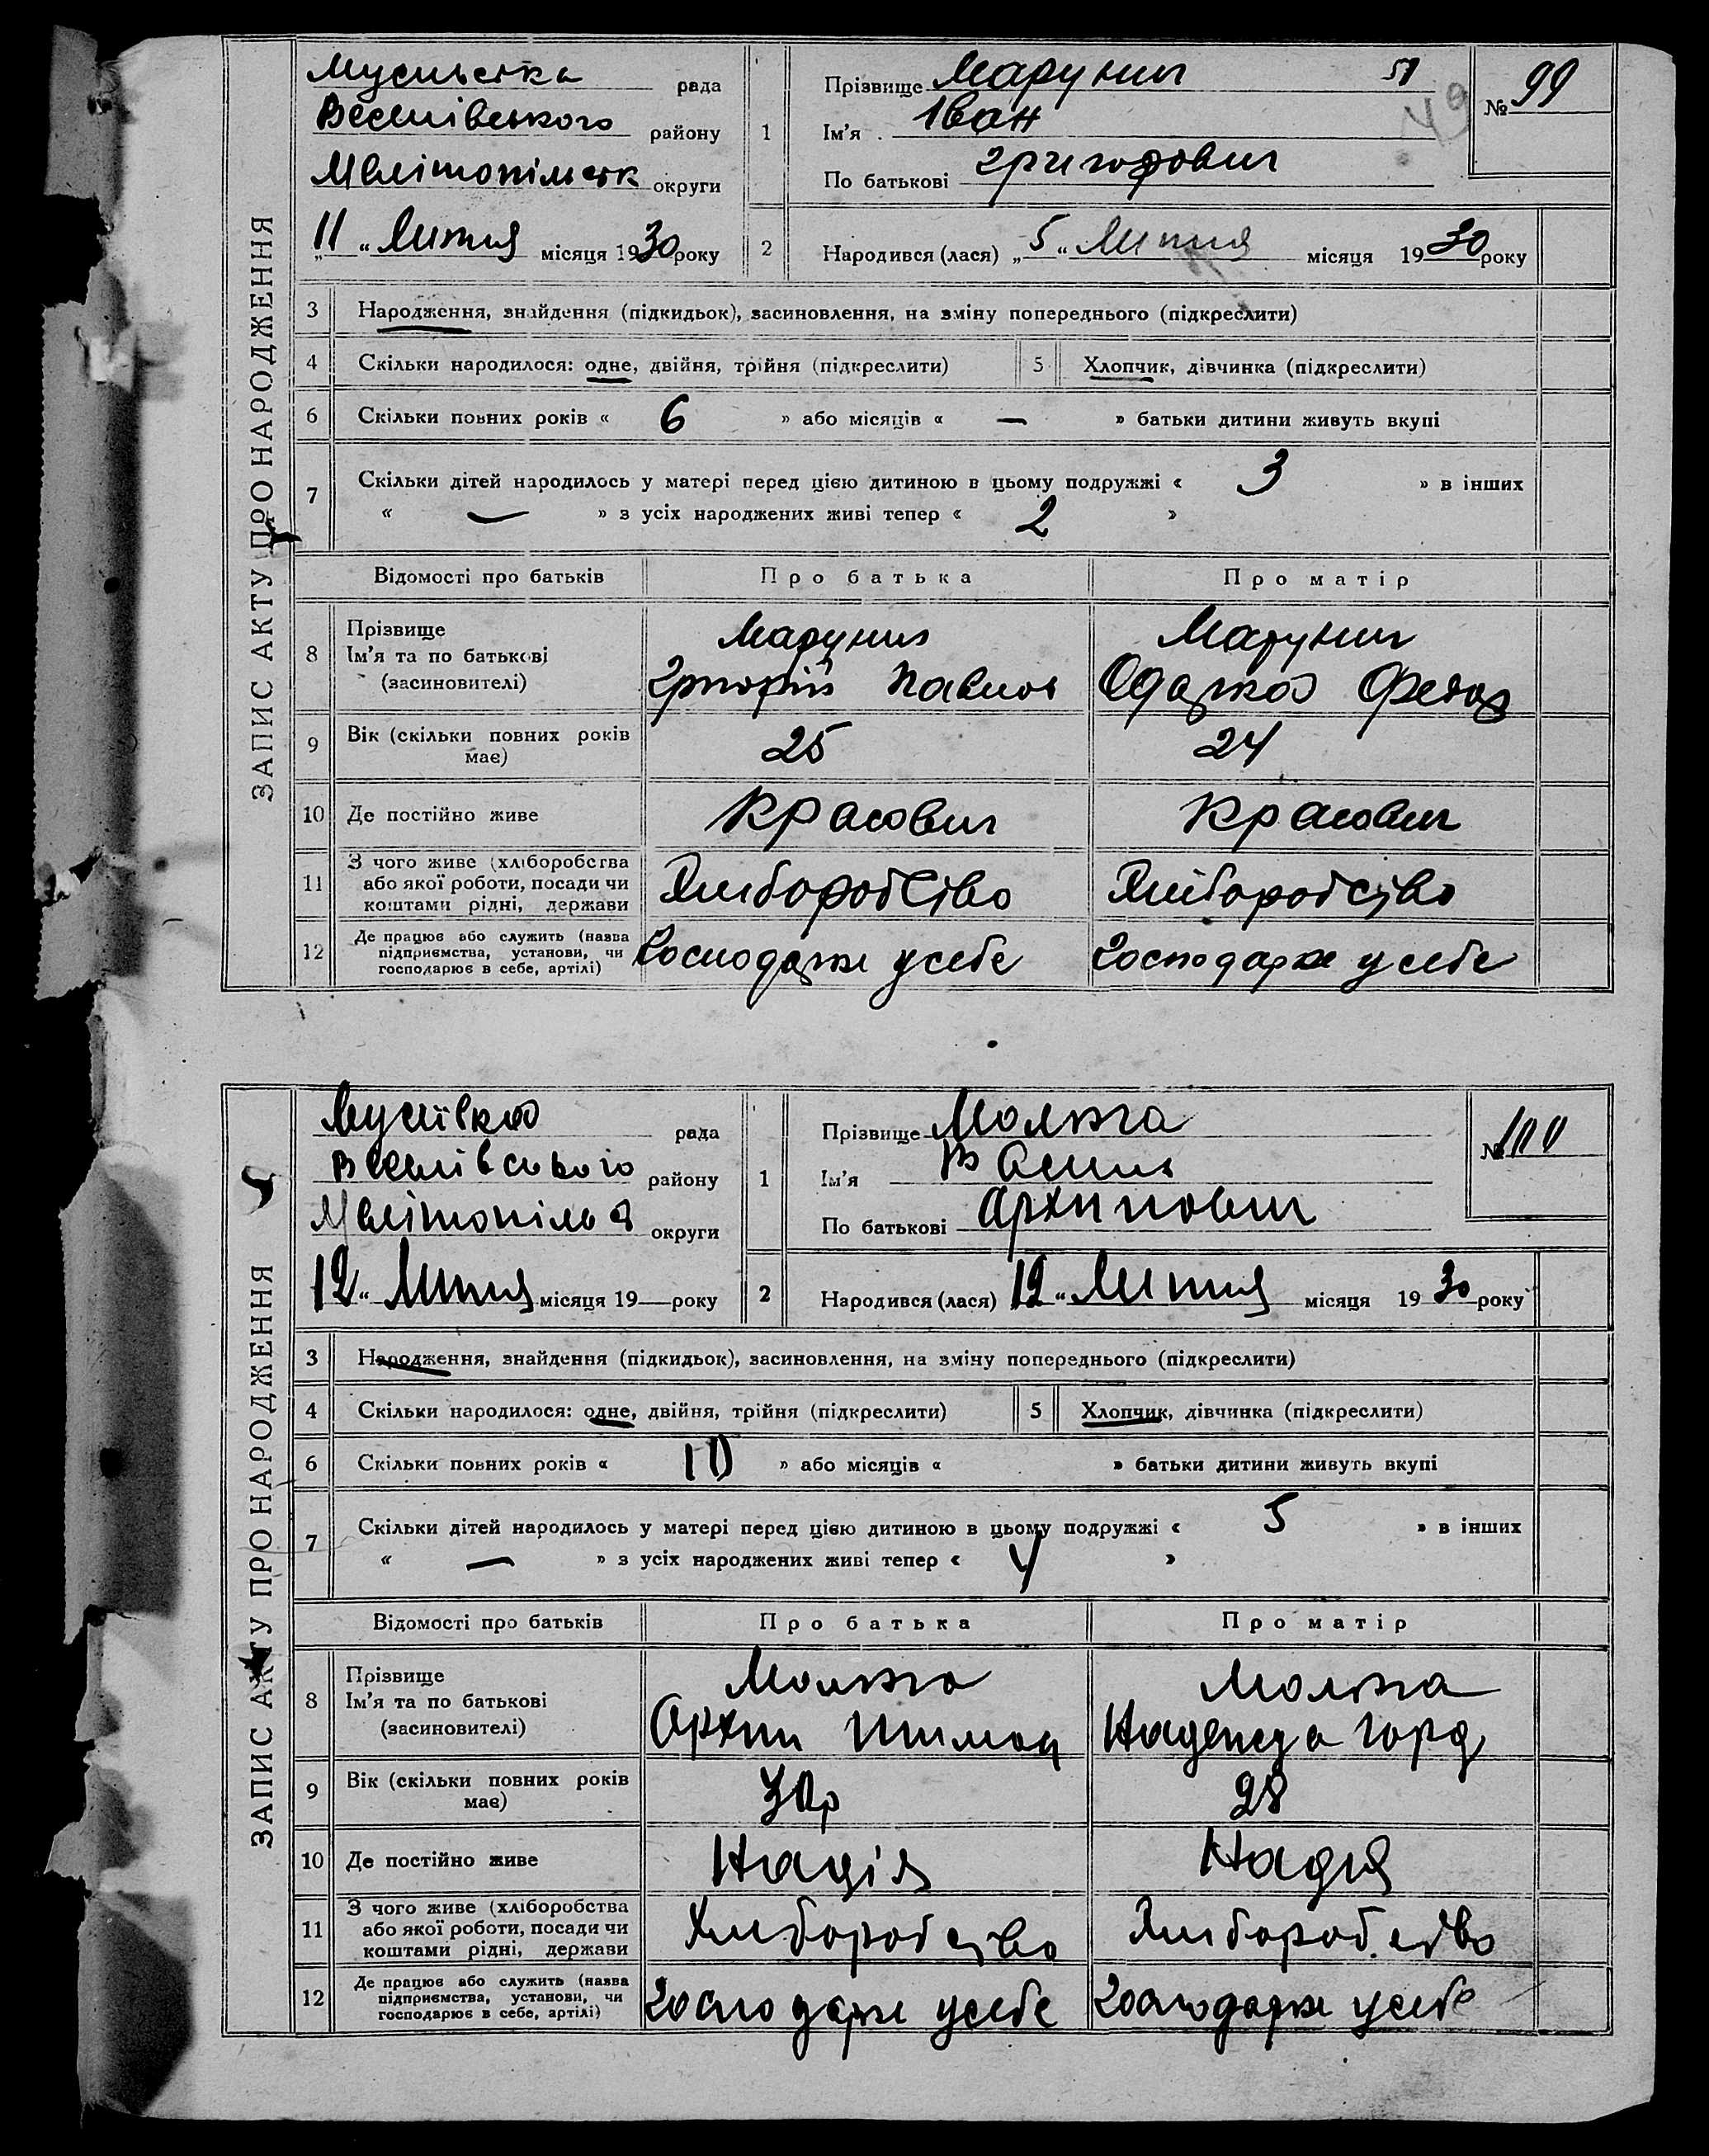 ЗАПИС АКТУ ПРО НАРОДЖЕННЯ
рада
Веселівського району
округи
11 „ Липня місяця 1930 року
1 Прізвище Марунич 51
Ім'я . Іван
По батькові Григорович
49
№ 99
2 Народився (лася) „ 5 “ Липня місяця 1930 року
3 Народження, знайдення (підкидьок), засиновлення, на зміну попереднього (підкреслити)
4 Скільки народилося: одне, двійня, трійня (підкреслити) 5 Хлопчик, дівчинка (підкреслити)
6 Скільки повних років « 6 » або місяців « — » батьки дитини живуть вкупі
7 Скільки дітей народилось у матері перед цією дитиною в цьому подружжі « 3 » в інших
« — » з усіх народжених живі тепер « 2 »
Відомості про батьків Про батька Про матір
8 Прізвище Марунич Марунич
Ім'я та по батькові Григорій Павлов Одарка
(засиновителі)
9 Вік (скільки повних років 25 24
має)
10 Де постійно живе
11 З чого живе (хліборобства Хліборобство Хліборобство
або якої роботи, посади чи
коштами рідні, держави
12 Де працює або служить (назва Господарює у себе Господарює у себе
підприємства, установи, чи
господарює в себе, артілі)
ЗАПИС АКТУ ПРО НАРОДЖЕННЯ
рада
Веселівського району
округи
12 “ Липня місяця 19—року
1 Прізвище
Ім'я Василь
По батькові Архипович
№ 100
2 Народився (лася) 12 “ Липня місяця 1930 року
3 Народження, знайдення (підкидьок), засиновлення, на зміну попереднього (підкреслити)
4 Скільки народилося: одне, двійня, трійня (підкреслити) 5 Хлопчик, дівчинка (підкреслити)
6 Скільки повних років « 10 » або місяців « » батьки дитини живуть вкупі
7 Скільки дітей народилось у матері перед цією дитиною в цьому подружжі « 5 » в інших
« — » з усіх народжених живі тепер « 4 »
Відомості про батьків Про батька Про матір
8 Прізвище
Ім'я та по батькові Архип Надежда Горд
(засиновителі)
9 Вік (скільки повних років 30р 28
має)
10 Де постійно живе Надія Надія
11 З чого живе (хліборобства Хліборобство Хліборобство
або якої роботи, посади чи
коштами рідні, держави
12 Де працює або служить (назва Господарює у себе Господарює у себе
підприємства, установи, чи
господарює в себе, артілі)